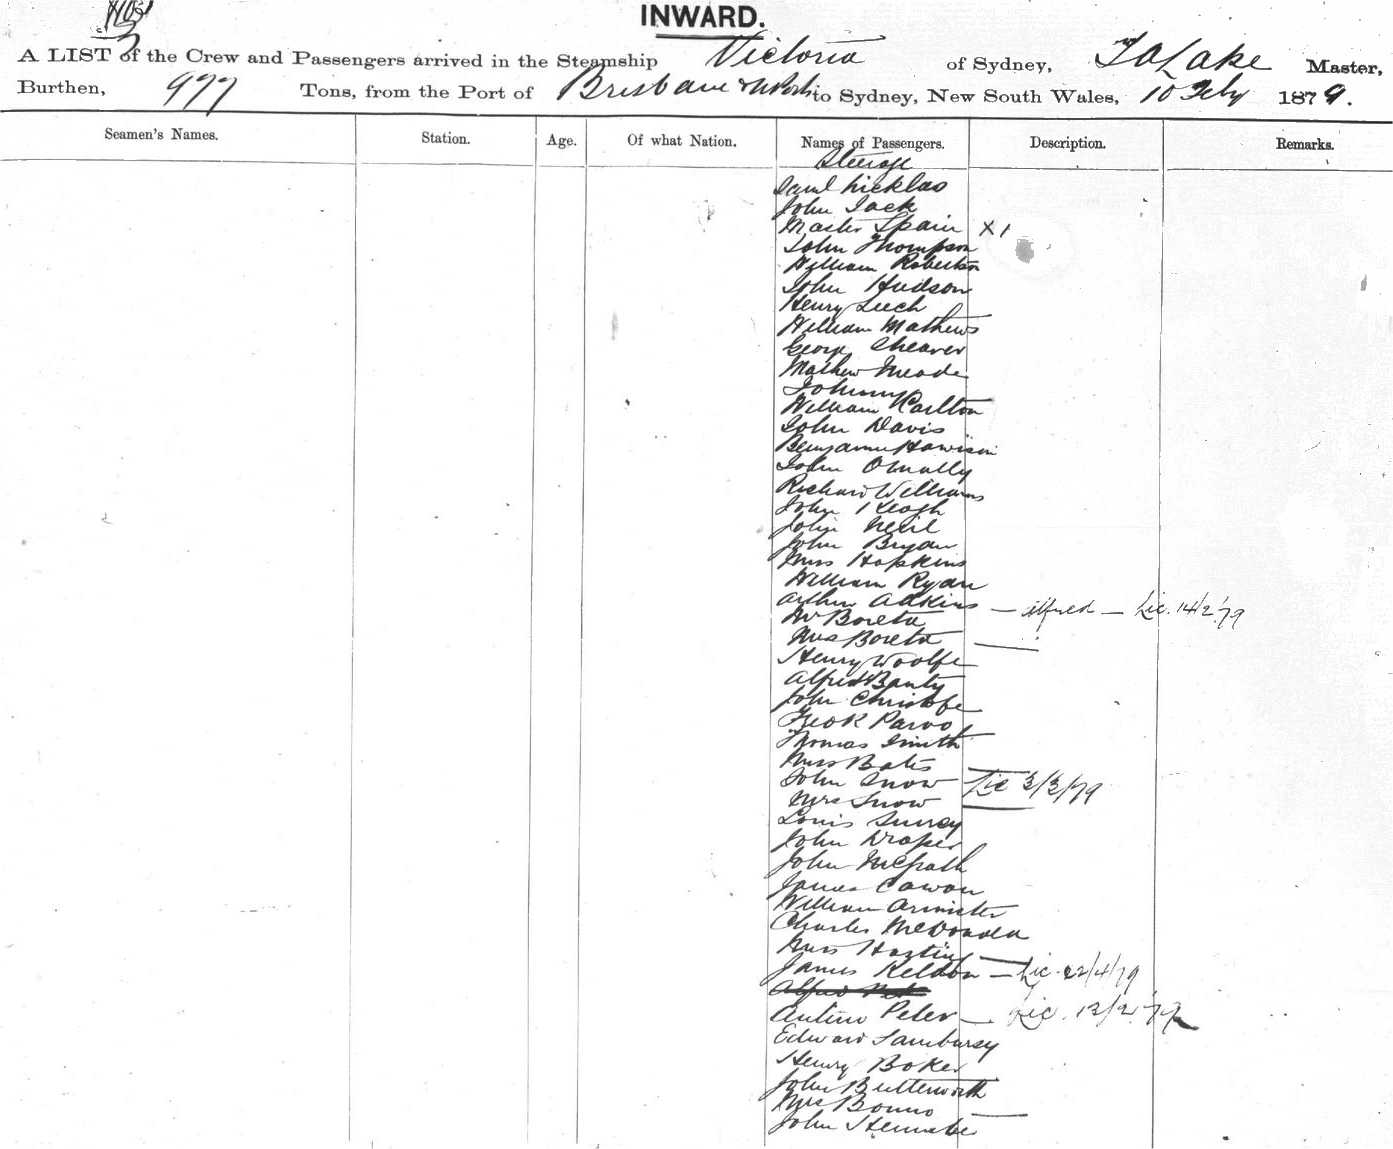 INWARD.
A LIST of the Crew and Passengers arrived in the Steamship Victoria of Sydney, Lake Master,
Burthen, 977 Tons, from the Port of Brisbane to Sydney, New South Wales, 10 Feby 1879.
Seamen's Names. Station. Age. Of what Nation. Names of Passengers. Description. Remarks.
Steerage
Nicklas
John Jack
Master Spain X1
John Thompson
William Robertson
John Hudson
Henry Leech
William Mathews
George Cheaver
Mathew Meade
Johnny
William Carlton
John Davis
Benjamin
John OMally
Richard Williams
John Keogh
John Neil
John Bryan
Miss Hopkins
William Ryan
Arthur Adkins — Alfred — Lic. 14/2/79
Mr Boreta
Mrs Boreta
Henry Woolfe
Alfred
John Christofe
Parvo
Thomas Smith
Miss Bates
John Snow Lic 3/3/79
Mrs Snow
Louis
John Draper
John McGrath
James Cowan
William Armister
Charles McDonald
James Keldon — Lic. 22/4/79
Alfred
Peter — Lic. 12/2/79
Edward
Henry Boker
John Butterworth
Mrs Bonno
John